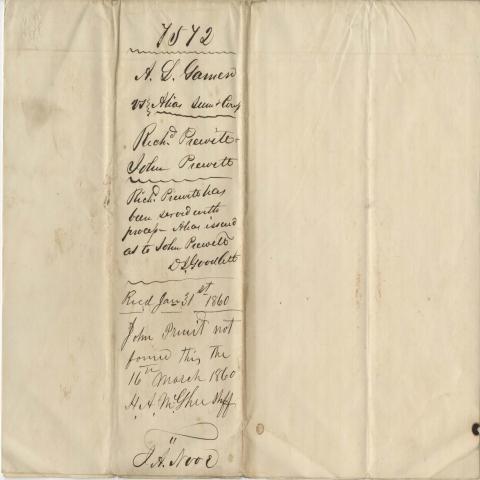 7572
A. L. Gamerd
vs } Alias Sum & Comp
Richd Prewitt &
John Prewett
Richd Prewitt has
been served with
process Alias issued
as to John Prewett
D L Goodlett
Recd Jany 31st 1860
John Pruit not
found this the
16th March 1860
H. A. McGhee Shff
J. A.